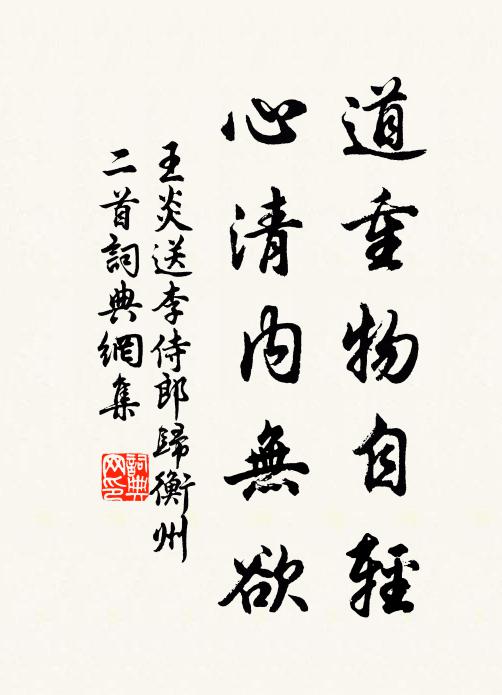 道重物自輕
心清內無欲
王炎送李侍郎歸衡州
二首詞典網集
詞典網印